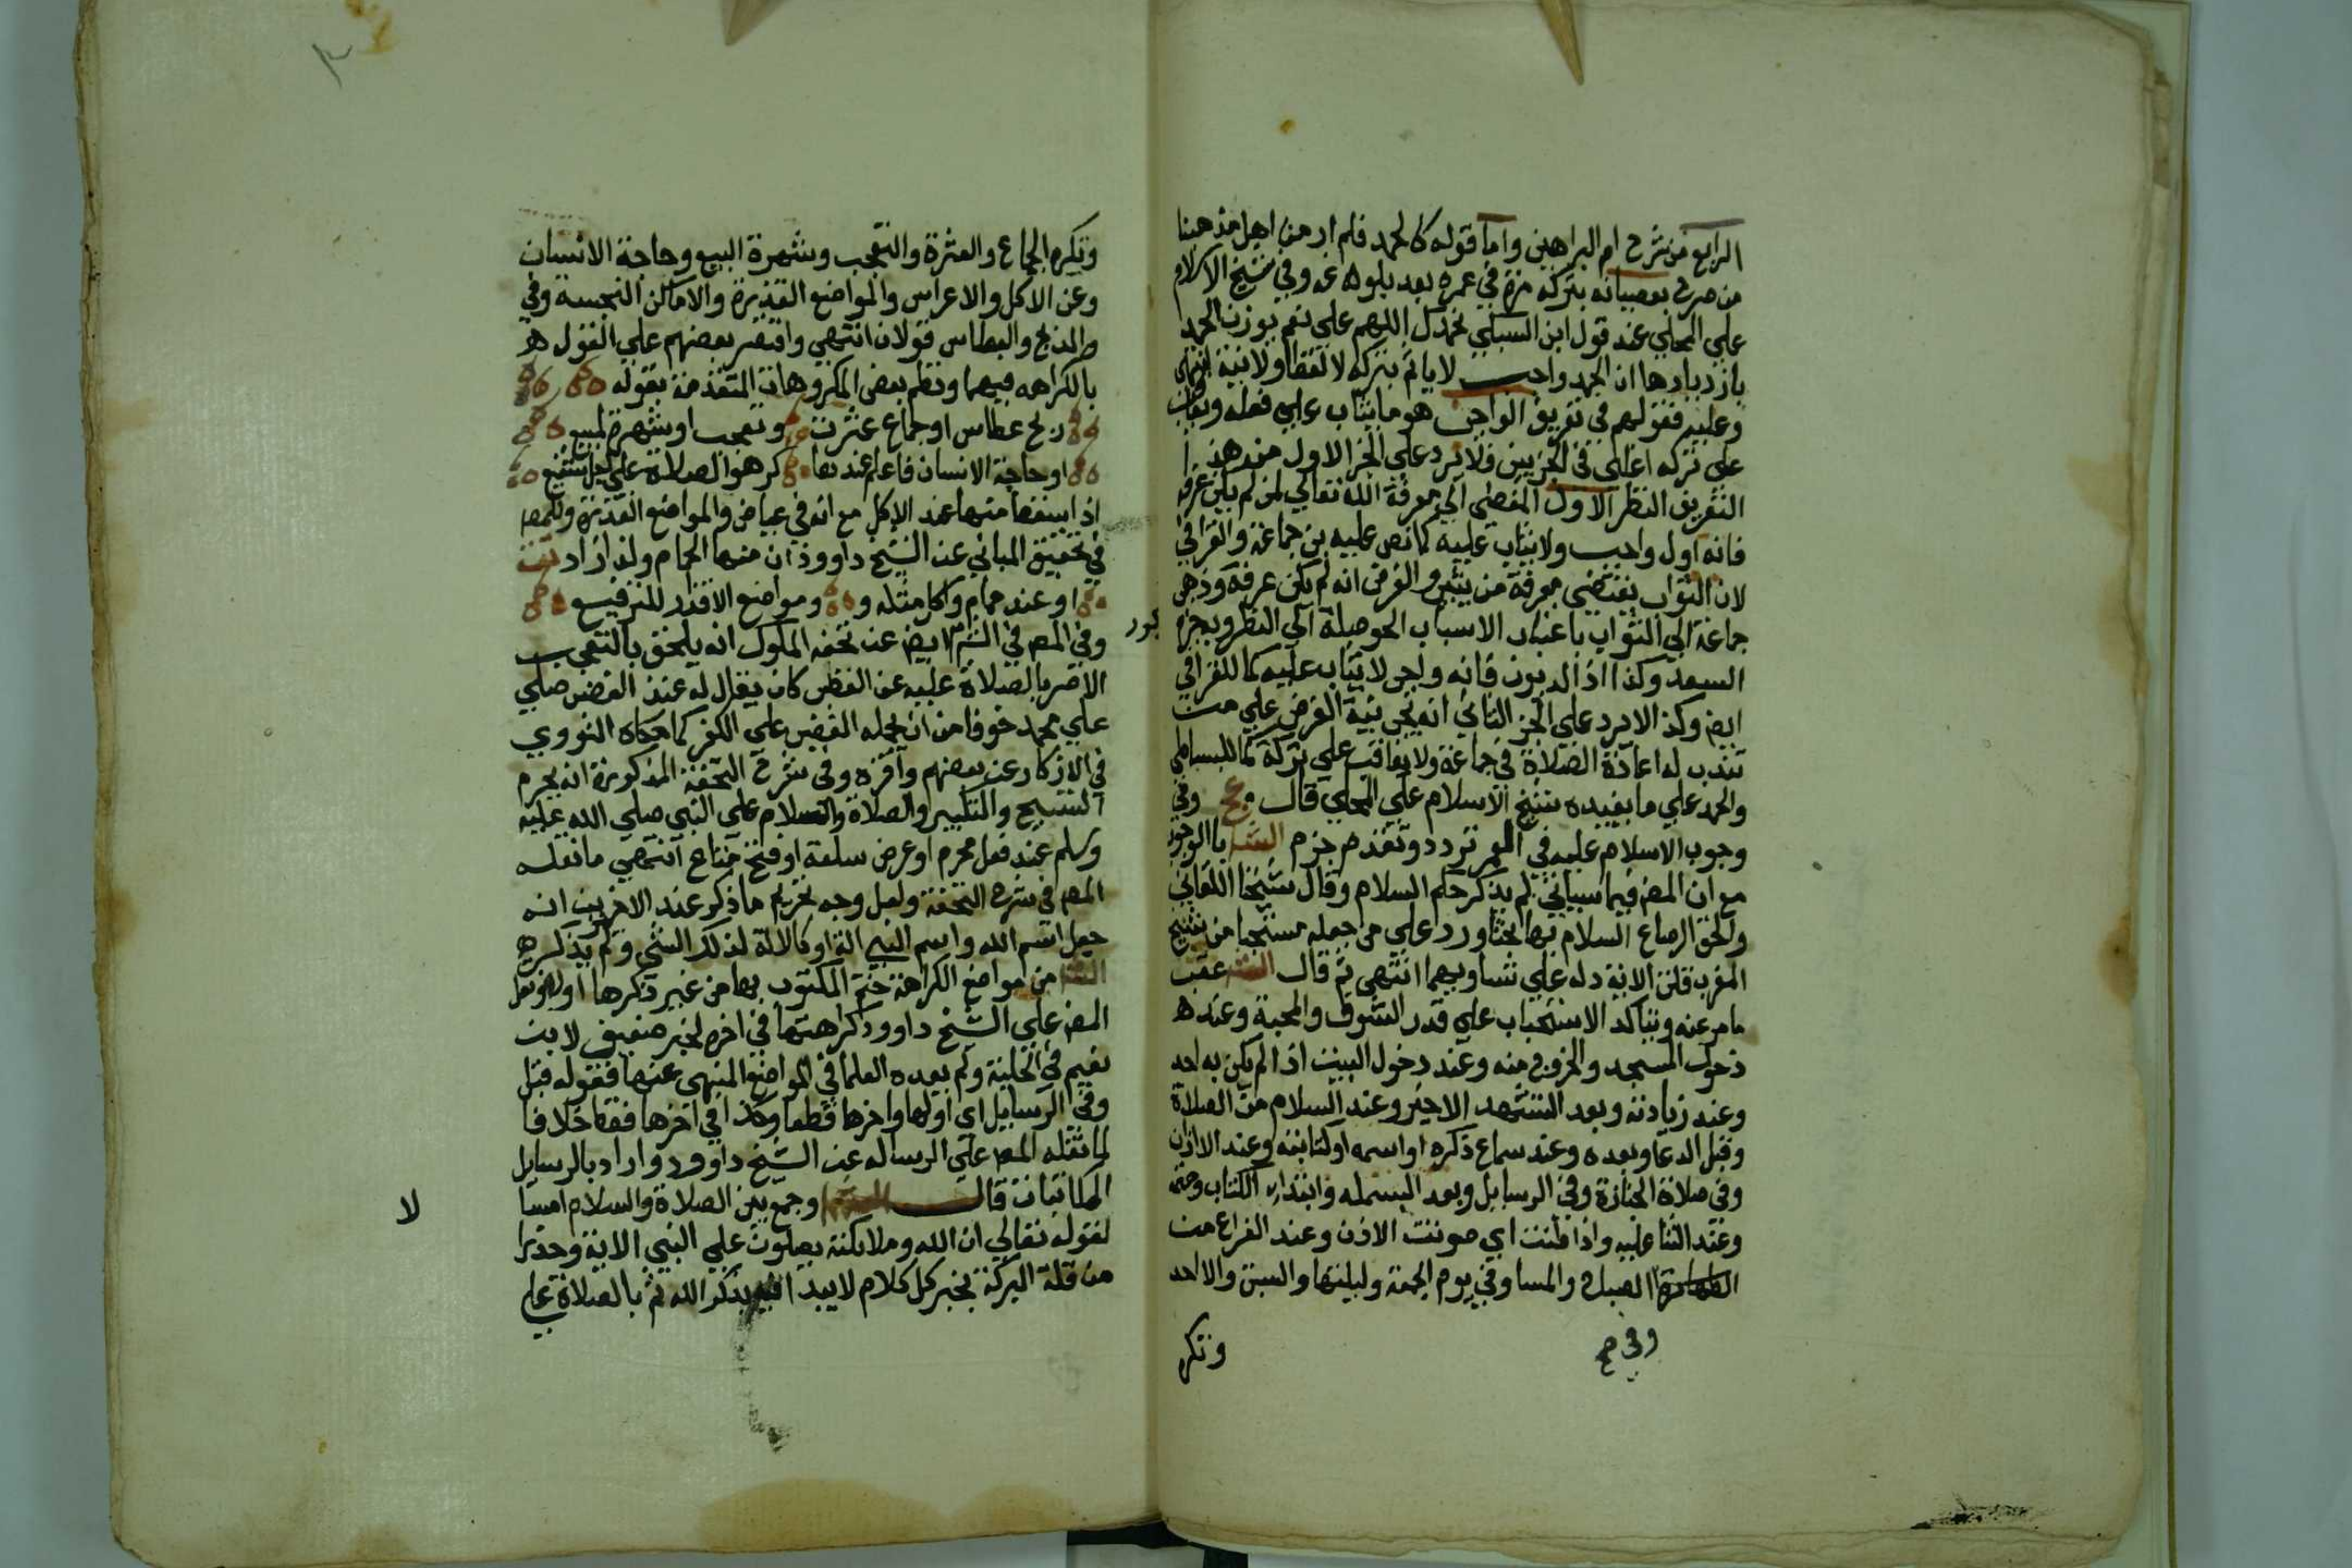 الرابع من شرح ام البراهين واما قوله كالحمد فلم ار من اهل مذهبنا
من صرح بعصيانه بتركه مرة في عمره بعد بلوغه وفي شيخ الاسلام
علي المحلي عند قول ابن السبكي نحمدك اللهم علي نعم يوذن الحمد
بازديادها ان الحمد واجب لا ياثم بتركه لا لفظا ولا نية انتهي
وعليه فقولهم في تعريف الواجب هو ما يثاب علي فعله ويعاقب
علي تركه اغلبي في الجزيين فلا يرد علي الجز الاول من هذا
التعريف النظر الاول المفضي الي معرفة الله تعالي لمن لم يكن عرفه
فانه اول واجب ولا يثاب عليه كما نص عليه بن جماعة والقرافي
لان الثواب يقتضي معرفة من يثيب والفرض انه لم يكن عرفه وذهب
جماعة الي الثواب باعتبار الاسباب الموصلة الي النظر وبجزم
السعد وكذا اذا الديون فانه واجب لا يثاب عليه كما للقرافي
ايضا وكذا لا يرد علي الجز الثاني انه تجب نية الفرض علي من
تندب له اعادة الصلاة في جماعة ولا يعاقب علي تركه كما للبساطي
والحمد علي ما يفيده شيخ الاسلام علي المحلي قال عج وفي
وجوب السلام عليه في العمر تردد وتقدم جزم الش بالوجوب
مع ان المص فيما سياتي لم يذكر حكم السلام وقال شيخنا اللقاني
والحق الرصاع السلام بها بحثا ورد علي من جعله مستحبا من شيوخ
المغرب قلت الاية دلة علي تساويهما انتهي ثم قال الش عقب
ما مر عنه ويتاكد الاستحباب علي قدر الشوق والمحبة وعنده
دخول المسجد والخروج منه وعند دخول البيت اذا لم يكن به احد
وعند زيارته وبعد التشهد الاخير وعند السلام من الصلاة
وقبل الدعا وبعده وعند سماع ذكره او اسمه او كتابته وعند الاذان
وفي صلاة الجنازة وفي الرسايل وبعد البسملة وابتدا الكتاب وختمه
وعند الثنا عليه واذا طنت اي صوتت الاذن وعند الفراغ من
الطهارة الصباح والمسا وفي يوم الجمعة وليلتها والسبت والاحد
وفي ص
وتكره
وتكره الجماع والعثرة والتعجب وشهرة البيع وحاجة الانسان
وعن الاكل والاعراس والمواضع القذرة والاماكن النجسة وفي
الذبح والعطاس قولان انتهي واقتصر بعضهم علي القول
بالكراهه فيهما ونظم بعض المكروهات المتقدمة بقوله
ذبح عطاس او جماع عثرت وتعجب او شهرة لمبيع
او حاجة الانسان فاعلم عندها كرهوا الصلاة علي اجل شفيع
اذا سقط منها عند الاكل مع انه في عياض والمواضع القذرة وللمص
في تحقيق المباني عن الشيخ داوود ان منها الحمام ولذا زاد تت
او عند حمام واكل مثله ومواضع الاقذار للترفيع
وفي المص في الش ايضا عن تحفه الملوك انه يلحق بالتعجب
الامر بالصلاة عليه عن الغضب كان يقال له عند الغضب صلي
علي محمد خوفا من ان يحمله الغضب علي الكفر كما حكاه النووي
في الاذكار عن بعضهم واقره وفي شرح التحفة المذكورة انه يحرم
التسبيح والتكبير والصلاة والسلام علي النبي صلي الله عليه
وسلم عند فعل محرم او عرض سلعة او فتح متاع انتهي ما نقله
المص في شرح التحفة ولعل وجه تحريم ما ذكر عند الاخيرين انه
جعل اسم الله واسم النبي الة او كالالة لذلك الشي ولم يذكر
الش من مواضع الكراهة ختم المكتوب بها من غير ذكرها اوله ونقل
المص علي الشيخ داوود كراهتها في اخره لخبر ضعيف لابن
نعيم في الحلية ولم يعده العلما في المواضع المنهي عنها فقوله قبل
وفي الرسايل اي اولها واخرها قطعا وكذا في اخرها فقط خلافا
لما نقله المص علي الرساله عن الشيخ داوود واراد بالرسايل
المكاتبات قال الش وجمع بين الصلاة والسلام امتثالا
لقوله تعالي ان الله وملايكته يصلون علي النبي الاية وحذرا
من قلة البركة بخبر كل كلام لا يبدا فيه بذكر الله ثم بالصلاة علي
لا